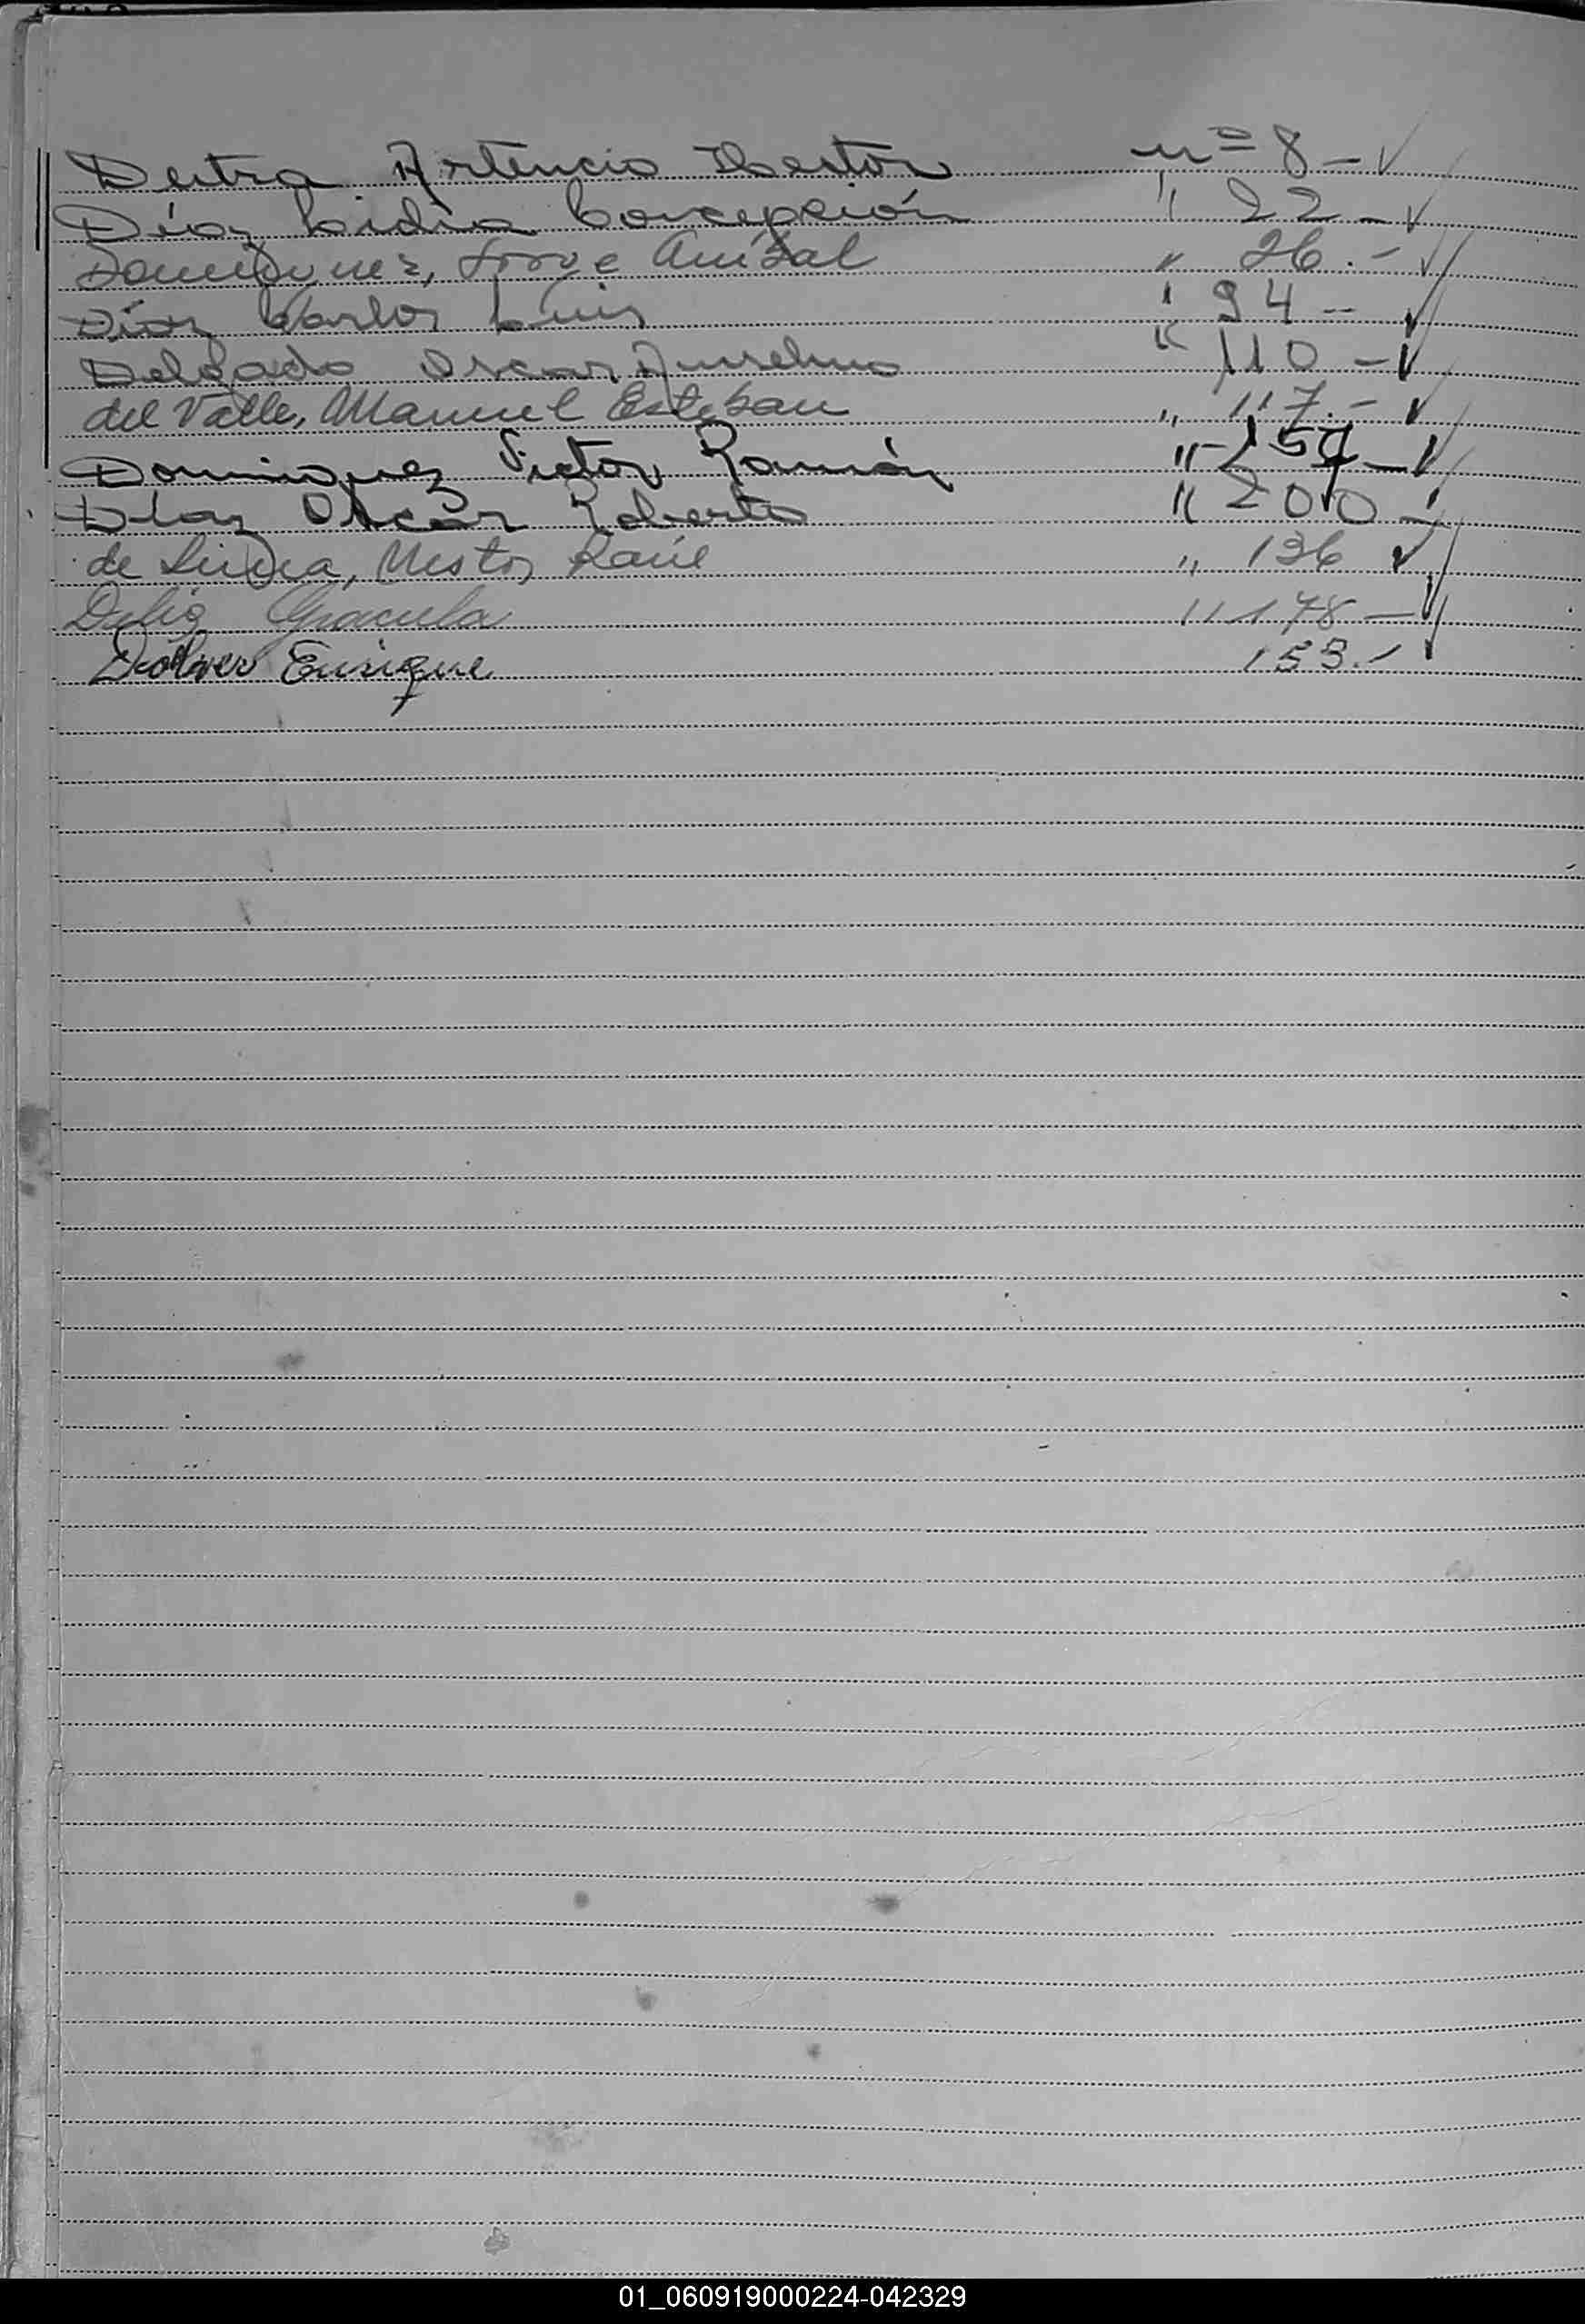 Deitra Artencio Hestor nº 8 -
Díaz Lidia Concepción " 22 -
Dominguez, Jorge Anibal " 26.-
Díaz Carlos Luis " 94 -
Delgado Oscar Anselmo " 110 -
del Valle, Manuel Esteban " 117.-
Dominguez Victor Ramón " 157 -
Díaz Oscar Roberto " 200 -
de Nestor Raúl " 136
Graciela " 178 -
Enrique 153.-
01_060919000224-042329